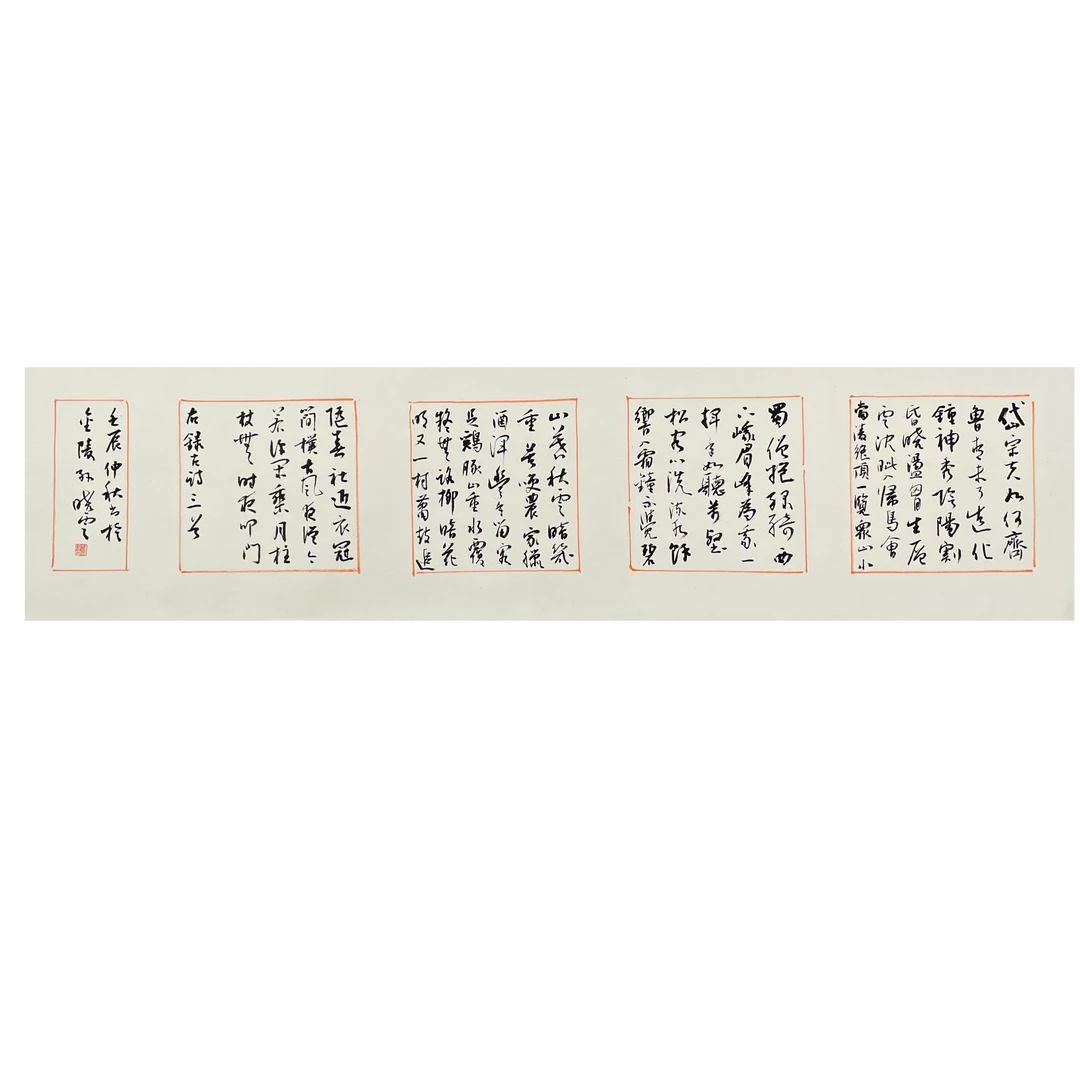 岱宗夫如何齊
魯青未了造化
鐘神秀陰陽割
昏曉盪胸生層
雲決眦入歸鳥會
當淩絕頂一覽衆山小
蜀僧抱綠綺西
下峨眉峰為我一
揮手如聽萬壑
松客心洗流水餘
響入霜鐘不覺碧
山暮秋雲暗幾
重莫笑農家臘
酒渾豐年留客
足鷄豚山重水複
疑無路柳暗花
明又一村蕭鼓追
隨春社近衣冠
簡樸古風存從今
若許閑乘月拄
杖無時夜叩門
右録古詩三首
壬辰仲秋書於
金陵孫曉雲